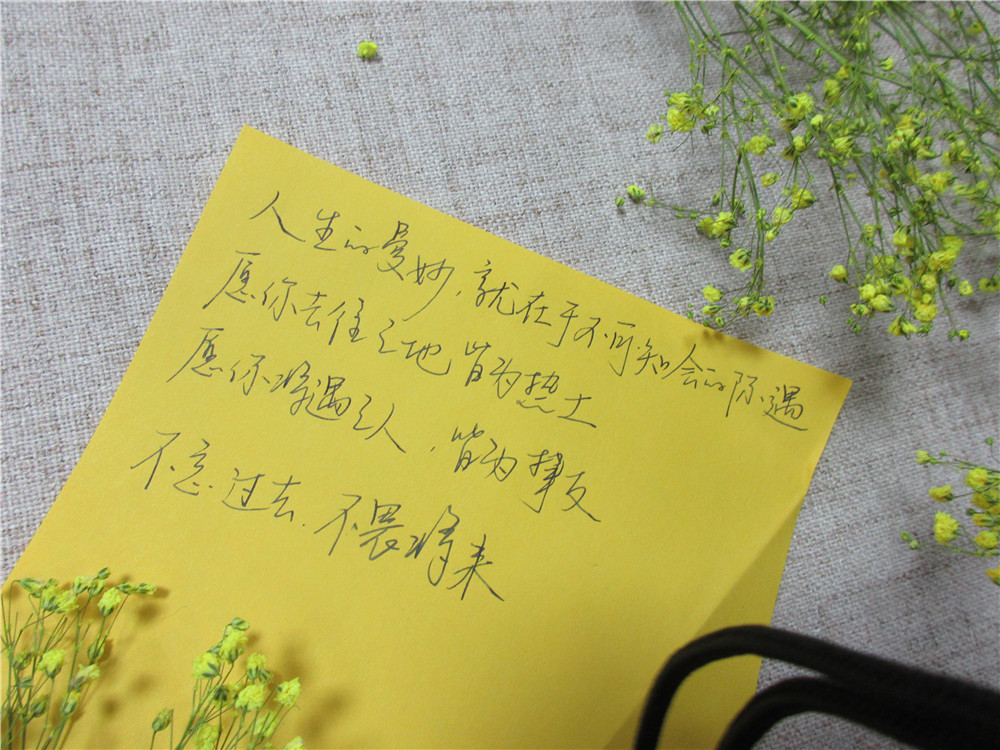 人生的曼妙，就在于不可知会的际遇
愿你去住之地皆为热土
愿你将遇之人，皆为挚友
不忘过去，不畏将来